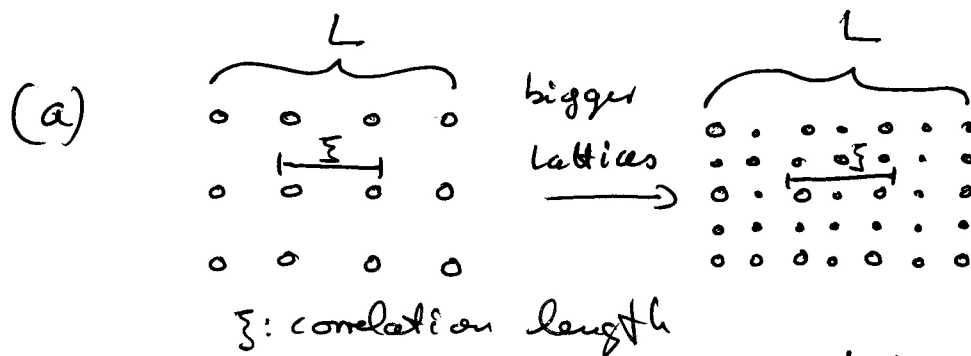 L L
(a) bigger
ξ lattices ξ
ξ: correlation length